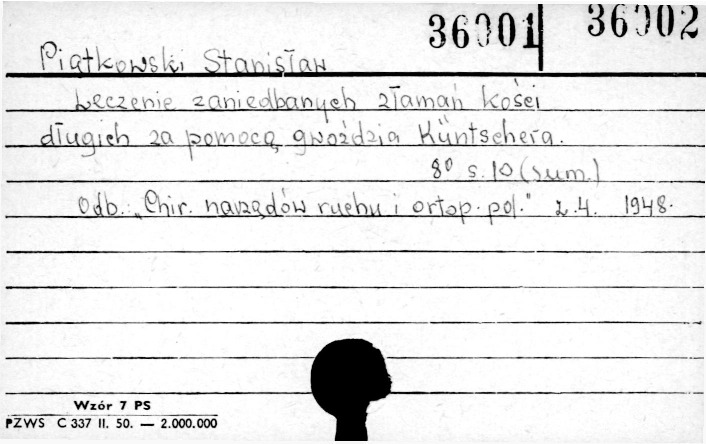 36001 36002
Piątkowski Stanisław
Leczenie zaniedbanych złamań kości
długich za pomocą gwoździa Küntschera.
8º s. 10 (sum.)
Odb. "Chir. narządów ruchu i ortop. pol." z. 4. 1948.
Wzór 7 PS
PZWS C 337 II. 50. — 2.000.000